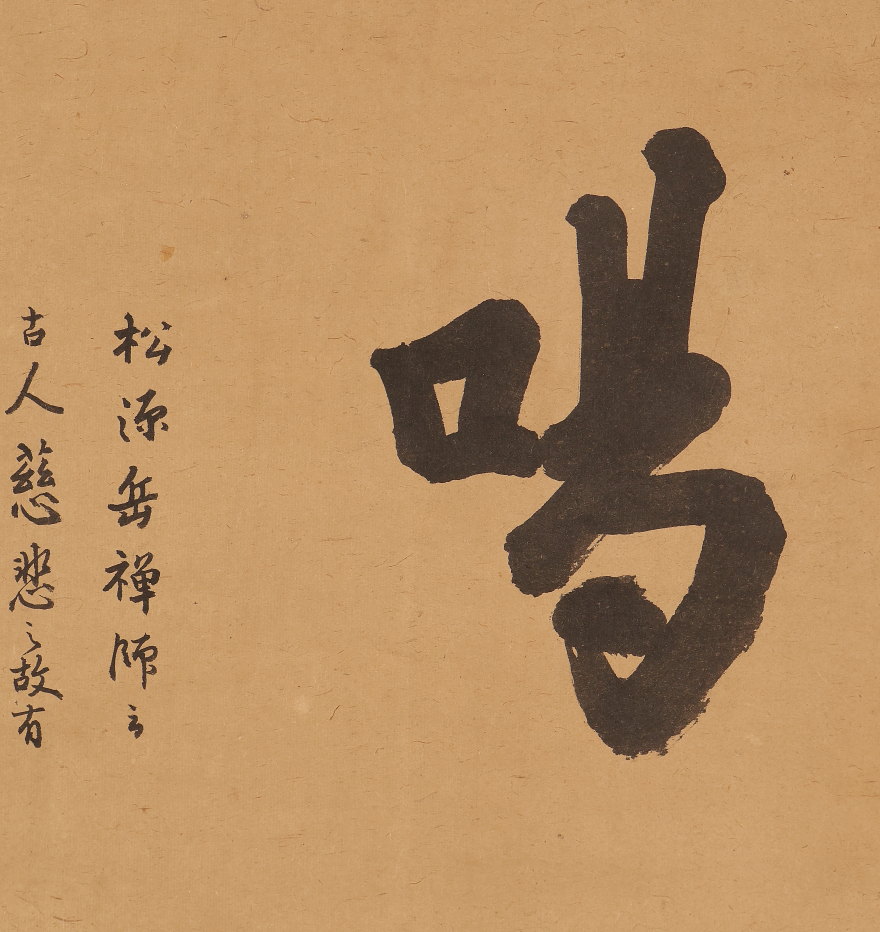 喝
松源岳禅師云
古人慈悲之故有